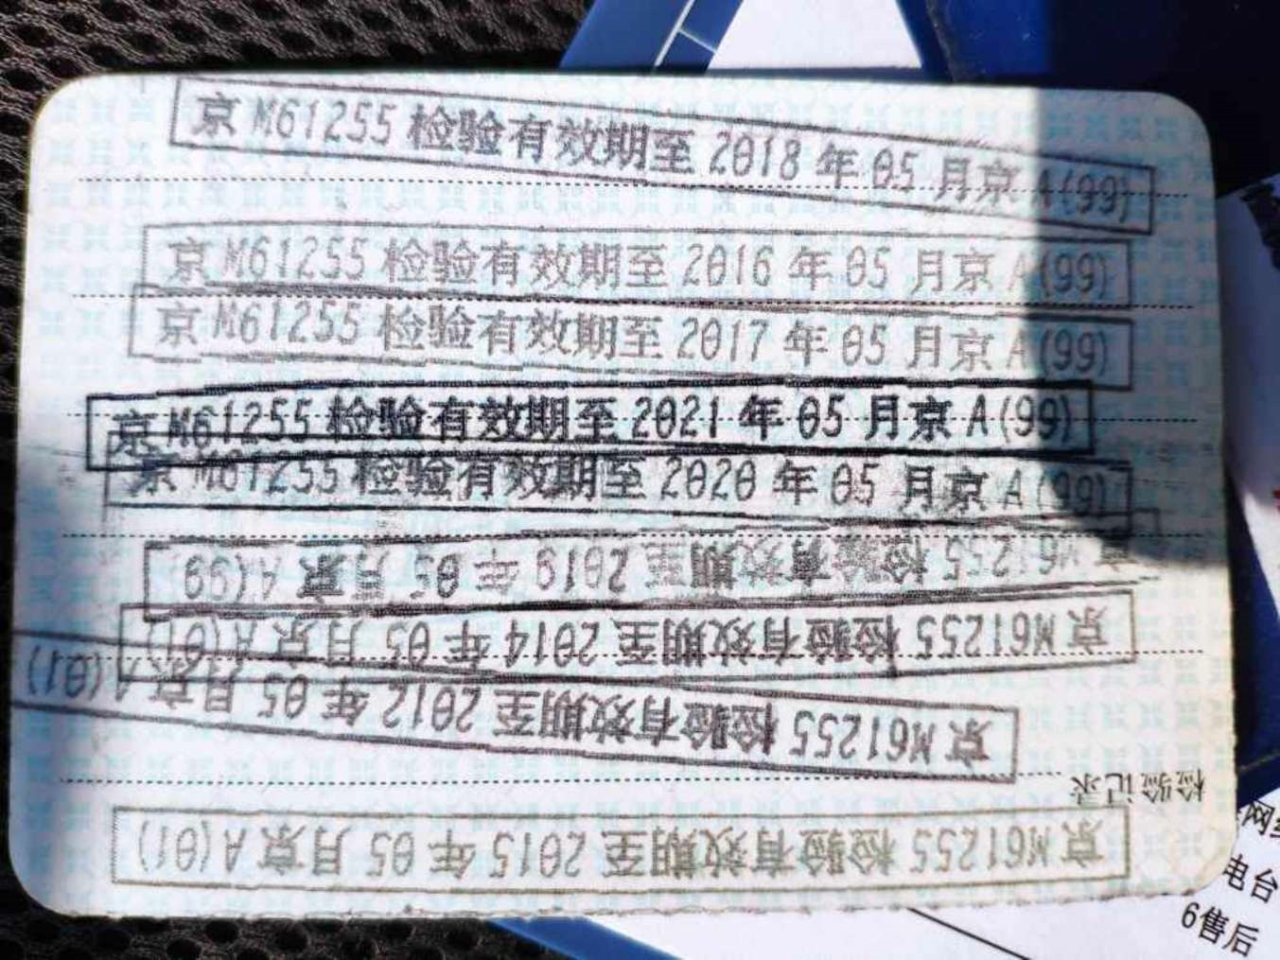 京M61255 检验有效期至 2018 年 05 月京 A(99)
京M61255 检验有效期至 2016 年 05 月京 A(99)
京M61255 检验有效期至 2017 年 05 月京 A(99)
京M61255 检验有效期至 2021 年 05 月京 A(99)
京M61255 检验有效期至 2020 年 05 月京 A(99)
京M61255 检验有效期至 2019 年 05 月京 A(99)
京M61255 检验有效期至 2014 年 05 月京 A(01)
京M61255 检验有效期至 2012 年 05 月京 A(01)
检验记录
京M61255 检验有效期至 2015 年 05 月京 A(01)
网
电台
6售后